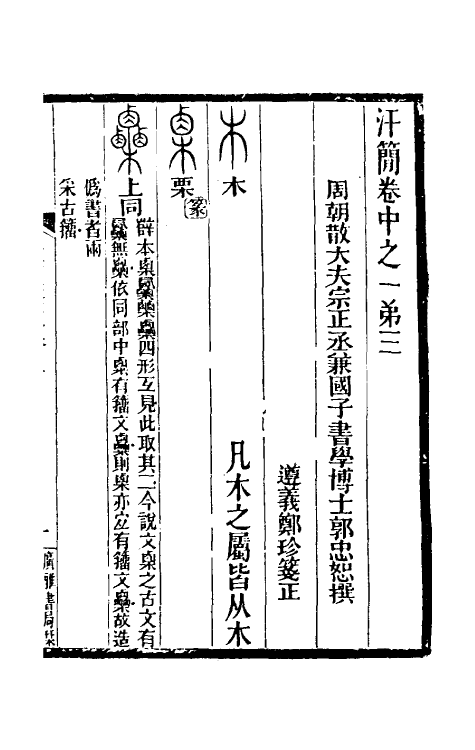 汗簡卷中之一弟三
周朝散大夫宗正丞兼國子書學博士郭忠恕撰
遵義鄭珍箋正
木 木 凡木之屬皆从木
栗 篆
上同
辭本㮚
四形互見此取其二今說文㮚之古文有
無
依同部中㮚有籀文
則㮚亦宐有籀文
故造
僞書者兩
采古籀
廣雅書局栞